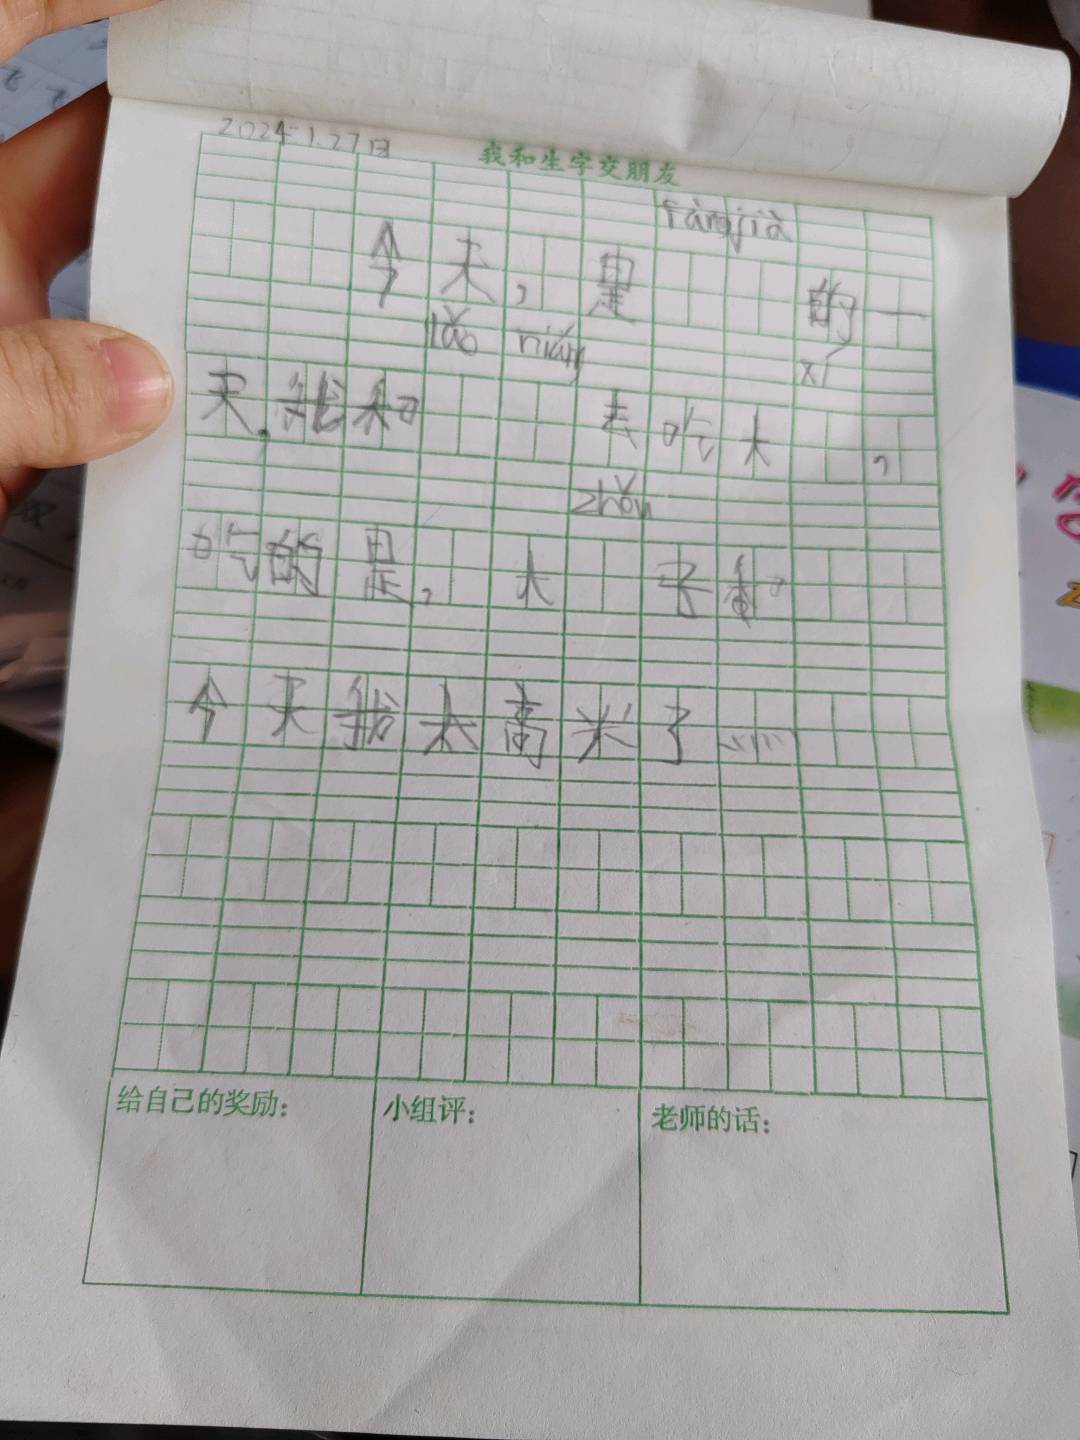 2024.1.27日
我和生字交朋友
fàngjià
今天,是 的一
lǎo niáng xí
天,我和 去吃大 ,
zhǒu
吃的是,大 子和
今天我太高兴了
给自己的奖励:
小组评:
老师的话: